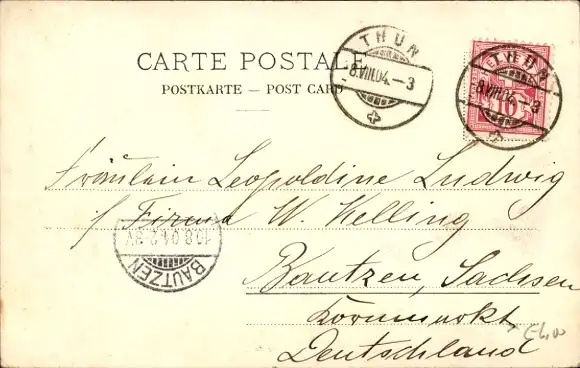 CARTE POSTALE
POSTKARTE — POST CARD
THUN
8.VIII.04.—3
THUN
8.VIII.04.—3
10
Fräulein Leopoldine Ludwig
p/ Firma W. Helling
Bautzen, Sachsen
Kornmarkt
Deutschland
10.8.04.
BAUTZEN